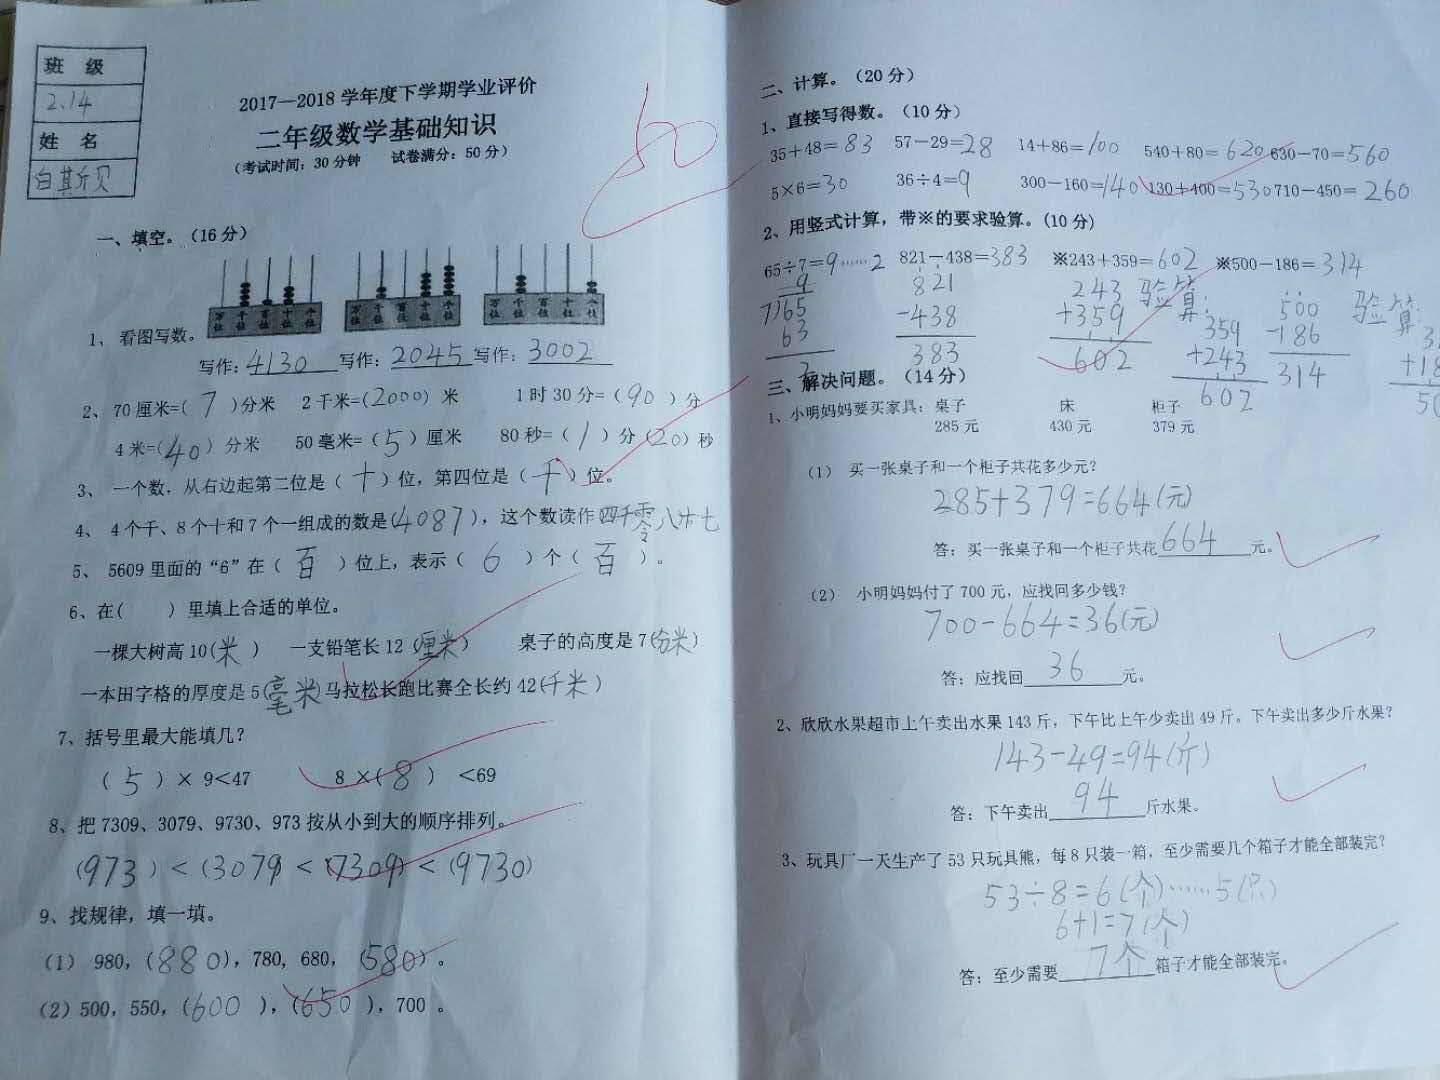 班 级
2.14
姓 名
2017—2018 学年度下学期学业评价
二年级数学基础知识
（考试时间：30 分钟 试卷满分：50 分）
50
一、填空。（16 分）
万位 千位 百位 十位 个位 万位 千位 百位 十位 个位 万位 千位 百位 十位 个位
1、 看图写数。
写作：4130 写作：2045 写作：3002
2、 70 厘米=( 7 )分米 2 千米=(2000) 米 1 时 30 分=( 90 ) 分
4 米=(40) 分米 50 毫米=( 5 ) 厘米 80 秒=( 1 ) 分 (20) 秒
3、 一个数，从右边起第二位是（ 十 ）位，第四位是（ 千 ）位。
4、 4 个千、8 个十和 7 个一组成的数是(4087)，这个数读作 四千零八十七
5、 5609 里面的“6”在（ 百 ）位上，表示（ 6 ）个（ 百 ）。
6、在( ) 里填上合适的单位。
一棵大树高 10(米 ) 一支铅笔长 12 (厘米) 桌子的高度是 7(分米)
一本田字格的厚度是 5(毫米) 马拉松长跑比赛全长约 42(千米 )
7、括号里最大能填几？
（ 5 ）× 9<47 8 ×( 8 ) <69
8、把 7309、3079、9730、973 按从小到大的顺序排列。
(973 ) < (3079) < (7309) < (9730)
9、找规律，填一填。
(1) 980, (880), 780, 680, (580) 。
(2) 500, 550, (600 ), (650 ), 700 。
二、计算。（20 分）
1、直接写得数。（10 分）
35＋48＝83 57－29＝28 14＋86＝100 540＋80＝620 630－70＝560
5×6＝30 36÷4＝9 300－160＝140 130＋400＝530 710－450＝260
2、用竖式计算，带※的要求验算。(10 分)
65÷7＝9……2 821－438＝383 ※243＋359＝602 ※500－186＝314
9 821 243 验算： 500 验算：
7)65 -438 +359 359 -186
63 383 602 +243 314
2 602
三、解决问题。（14 分）
1、小明妈妈要买家具：桌子 床 柜子
285 元 430 元 379 元
（1） 买一张桌子和一个柜子共花多少元？
285+379=664(元)
答：买一张桌子和一个柜子共花 664 元。
（2） 小明妈妈付了 700 元，应找回多少钱？
700-664=36(元)
答：应找回 36 元。
2、欣欣水果超市上午卖出水果 143 斤，下午比上午少卖出 49 斤。下午卖出多少斤水果？
143-49=94(斤)
答：下午卖出 94 斤水果。
3、玩具厂一天生产了 53 只玩具熊，每 8 只装一箱，至少需要几个箱子才能全部装完？
53÷8=6(个)……5(只)
6+1=7(个)
答：至少需要 7个 箱子才能全部装完。